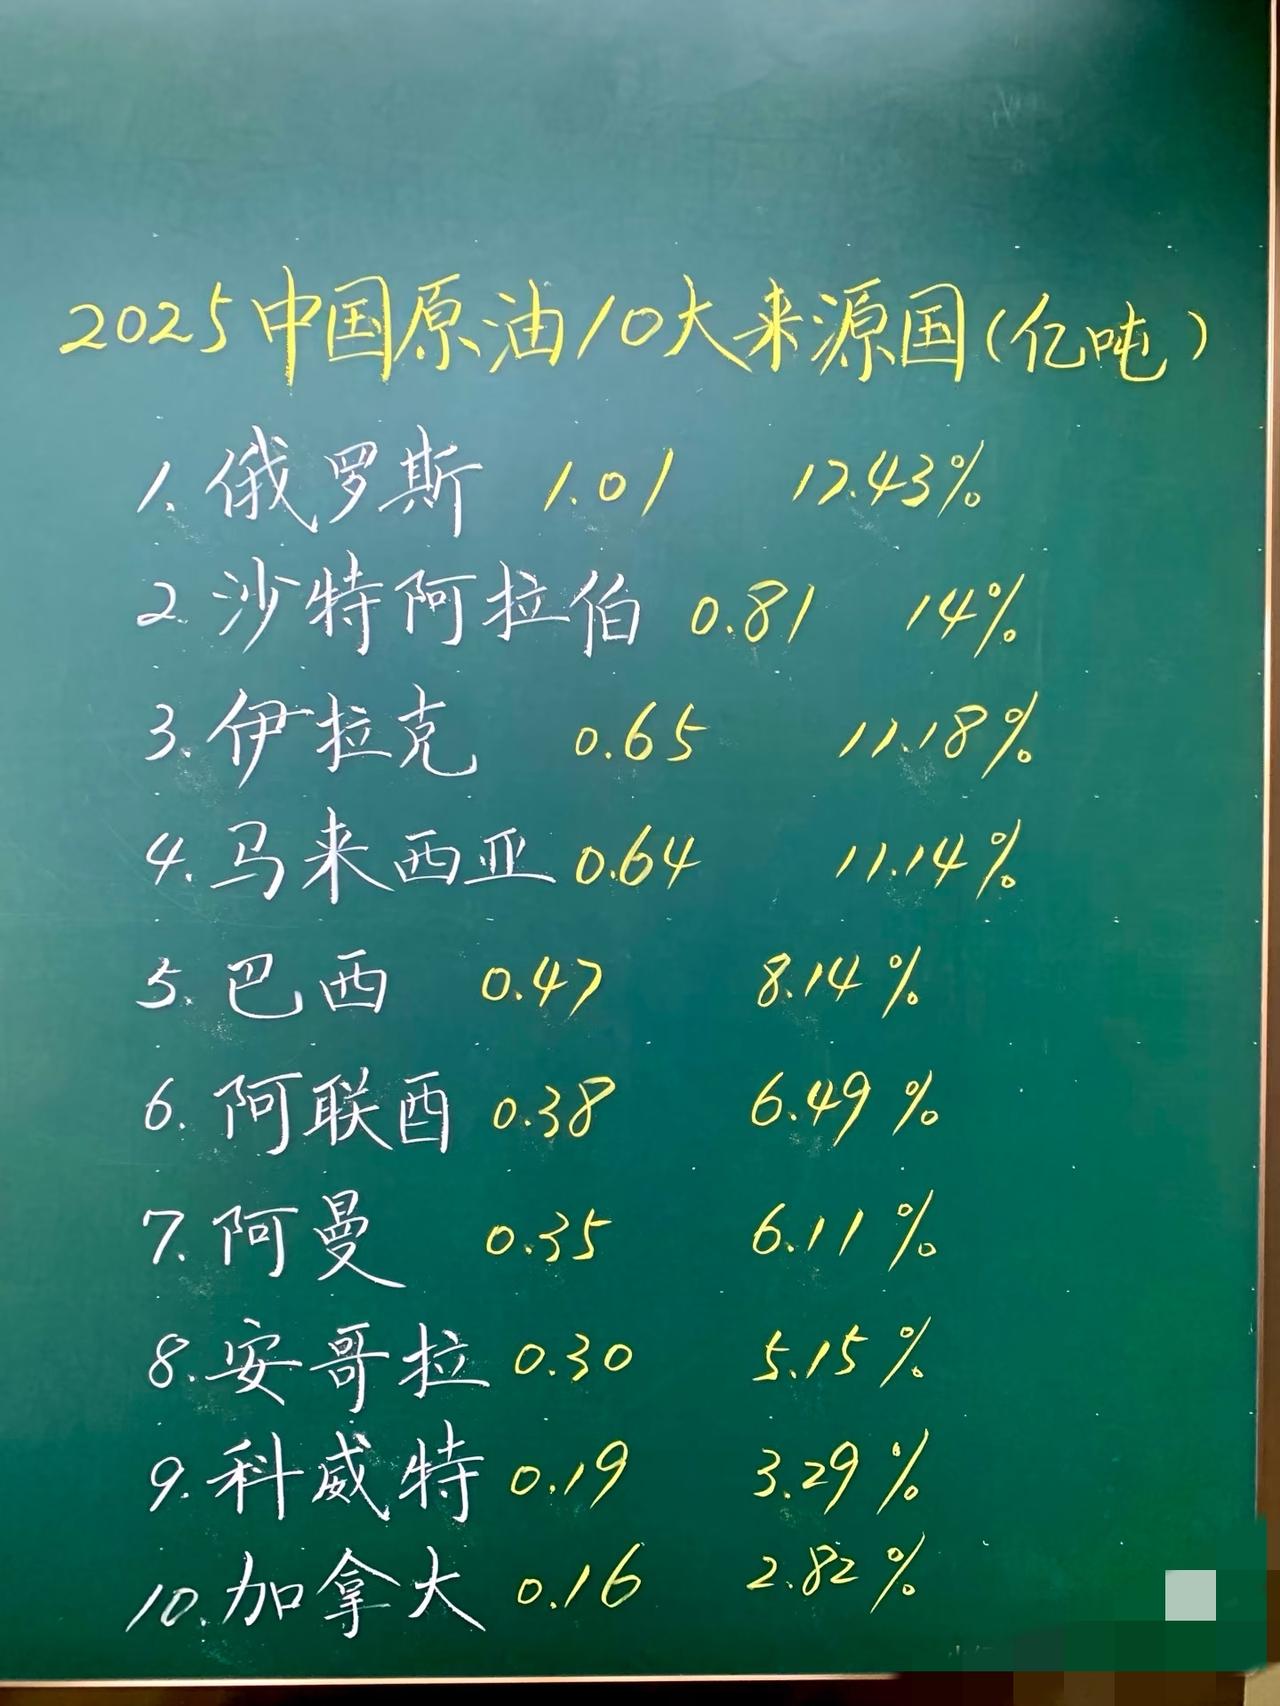 2025中国原油10大来源国(亿吨)
1. 俄罗斯 1.01 17.43%
2. 沙特阿拉伯 0.81 14%
3. 伊拉克 0.65 11.18%
4. 马来西亚 0.64 11.14%
5. 巴西 0.47 8.14%
6. 阿联酋 0.38 6.49%
7. 阿曼 0.35 6.11%
8. 安哥拉 0.30 5.15%
9. 科威特 0.19 3.29%
10. 加拿大 0.16 2.82%